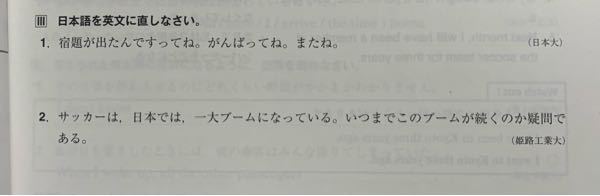 Ⅲ 日本語を英文に直しなさい。
1. 宿題が出たんですってね。がんばってね。またね。 (日本大)
2. サッカーは，日本では，一大ブームになっている。いつまでこのブームが続くのか疑問で
ある。 (姫路工業大)